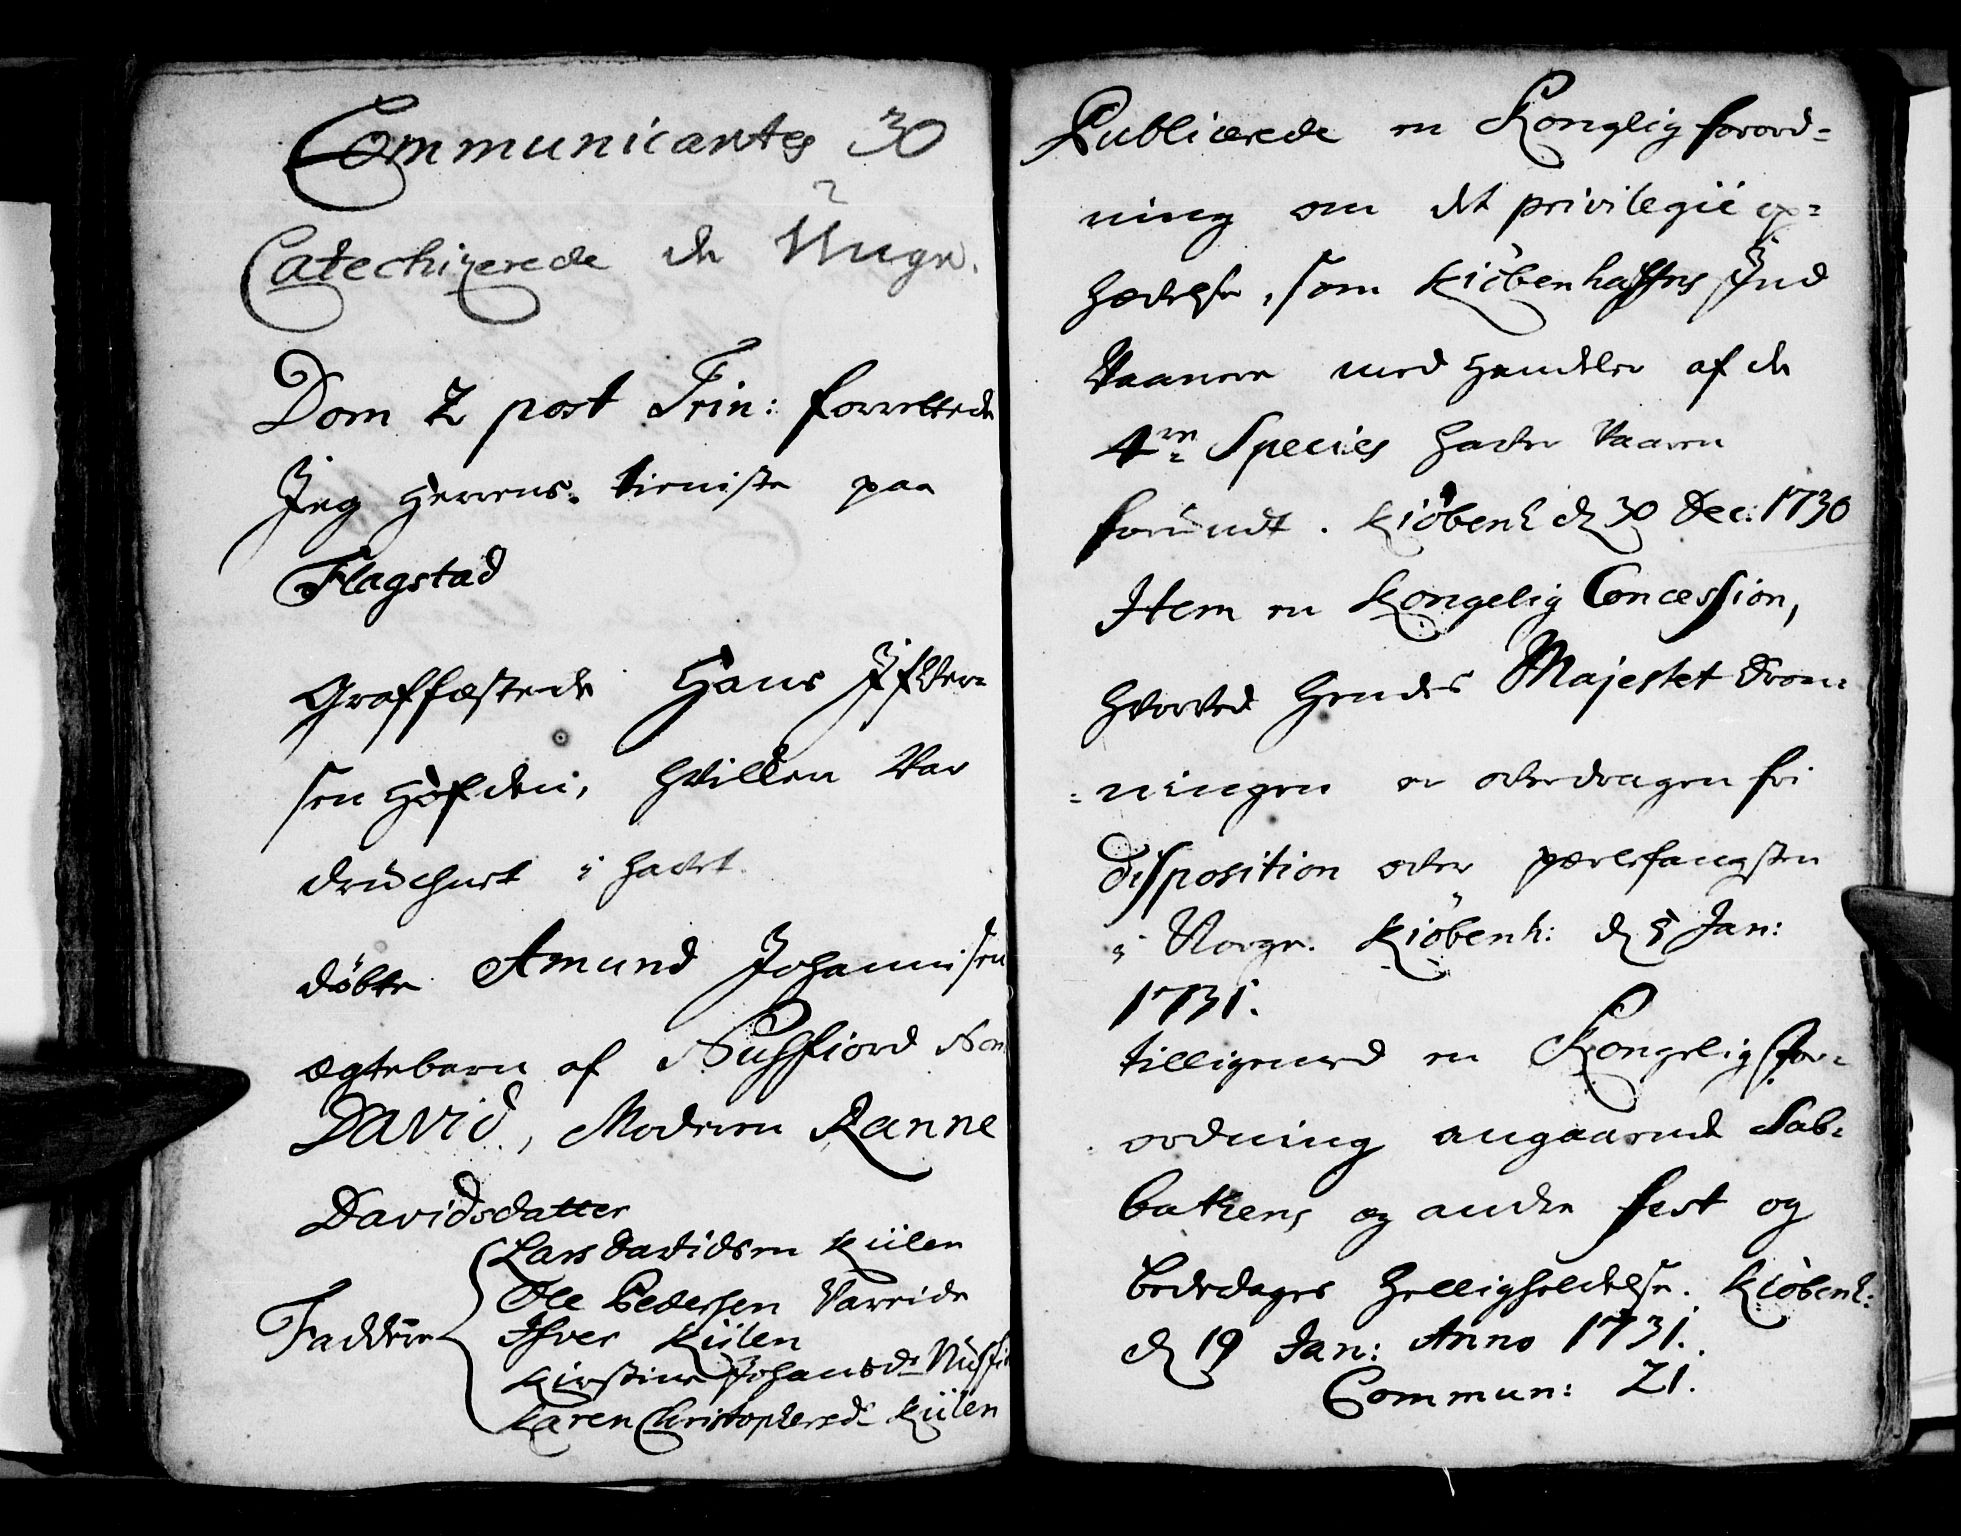 Communicantes 30
Catechizerede de Unge.
Dom 2 post Trin: forrettede
Jeg Herrens tieniste paa
Flagstad
Graffæstede Hans Ifver=
sen Høfden, hvilken Var
druchnet i havet.
döbte Amund Johannisen
ægtebarn af Nussfiord
David, Moderen Ranne
Davidsdatter
Lars Davidsen Kiilen
Ole Pedersen Vareide
Fadder Ifver Kiilen
Kirstine Johansd:
Karen Christophersd: Kiilen
Publicerede en Konglig forord=
ning om det privilegii op=
hævelse, som Kiöbenhaffns Ind
Vaanere med Handelen af de
4re Species hafver Vaaren
forundt. Kiöbenh d 30 Dec: 1730
Item en Kongelig Concession,
hvorved Hendes Majestet Dron=
=ningen er overdragen fri
disposition over perlefangsten
i Norge. Kiöbenh: d 5 Jan:
1731.
tilligemed en Kongelig For=
ordning angaaende Sab=
bathens og andre fest og
bededages helligholdelse. Kiöbenh:
d 19 Jan: Anno 1731.
Commun: 21.